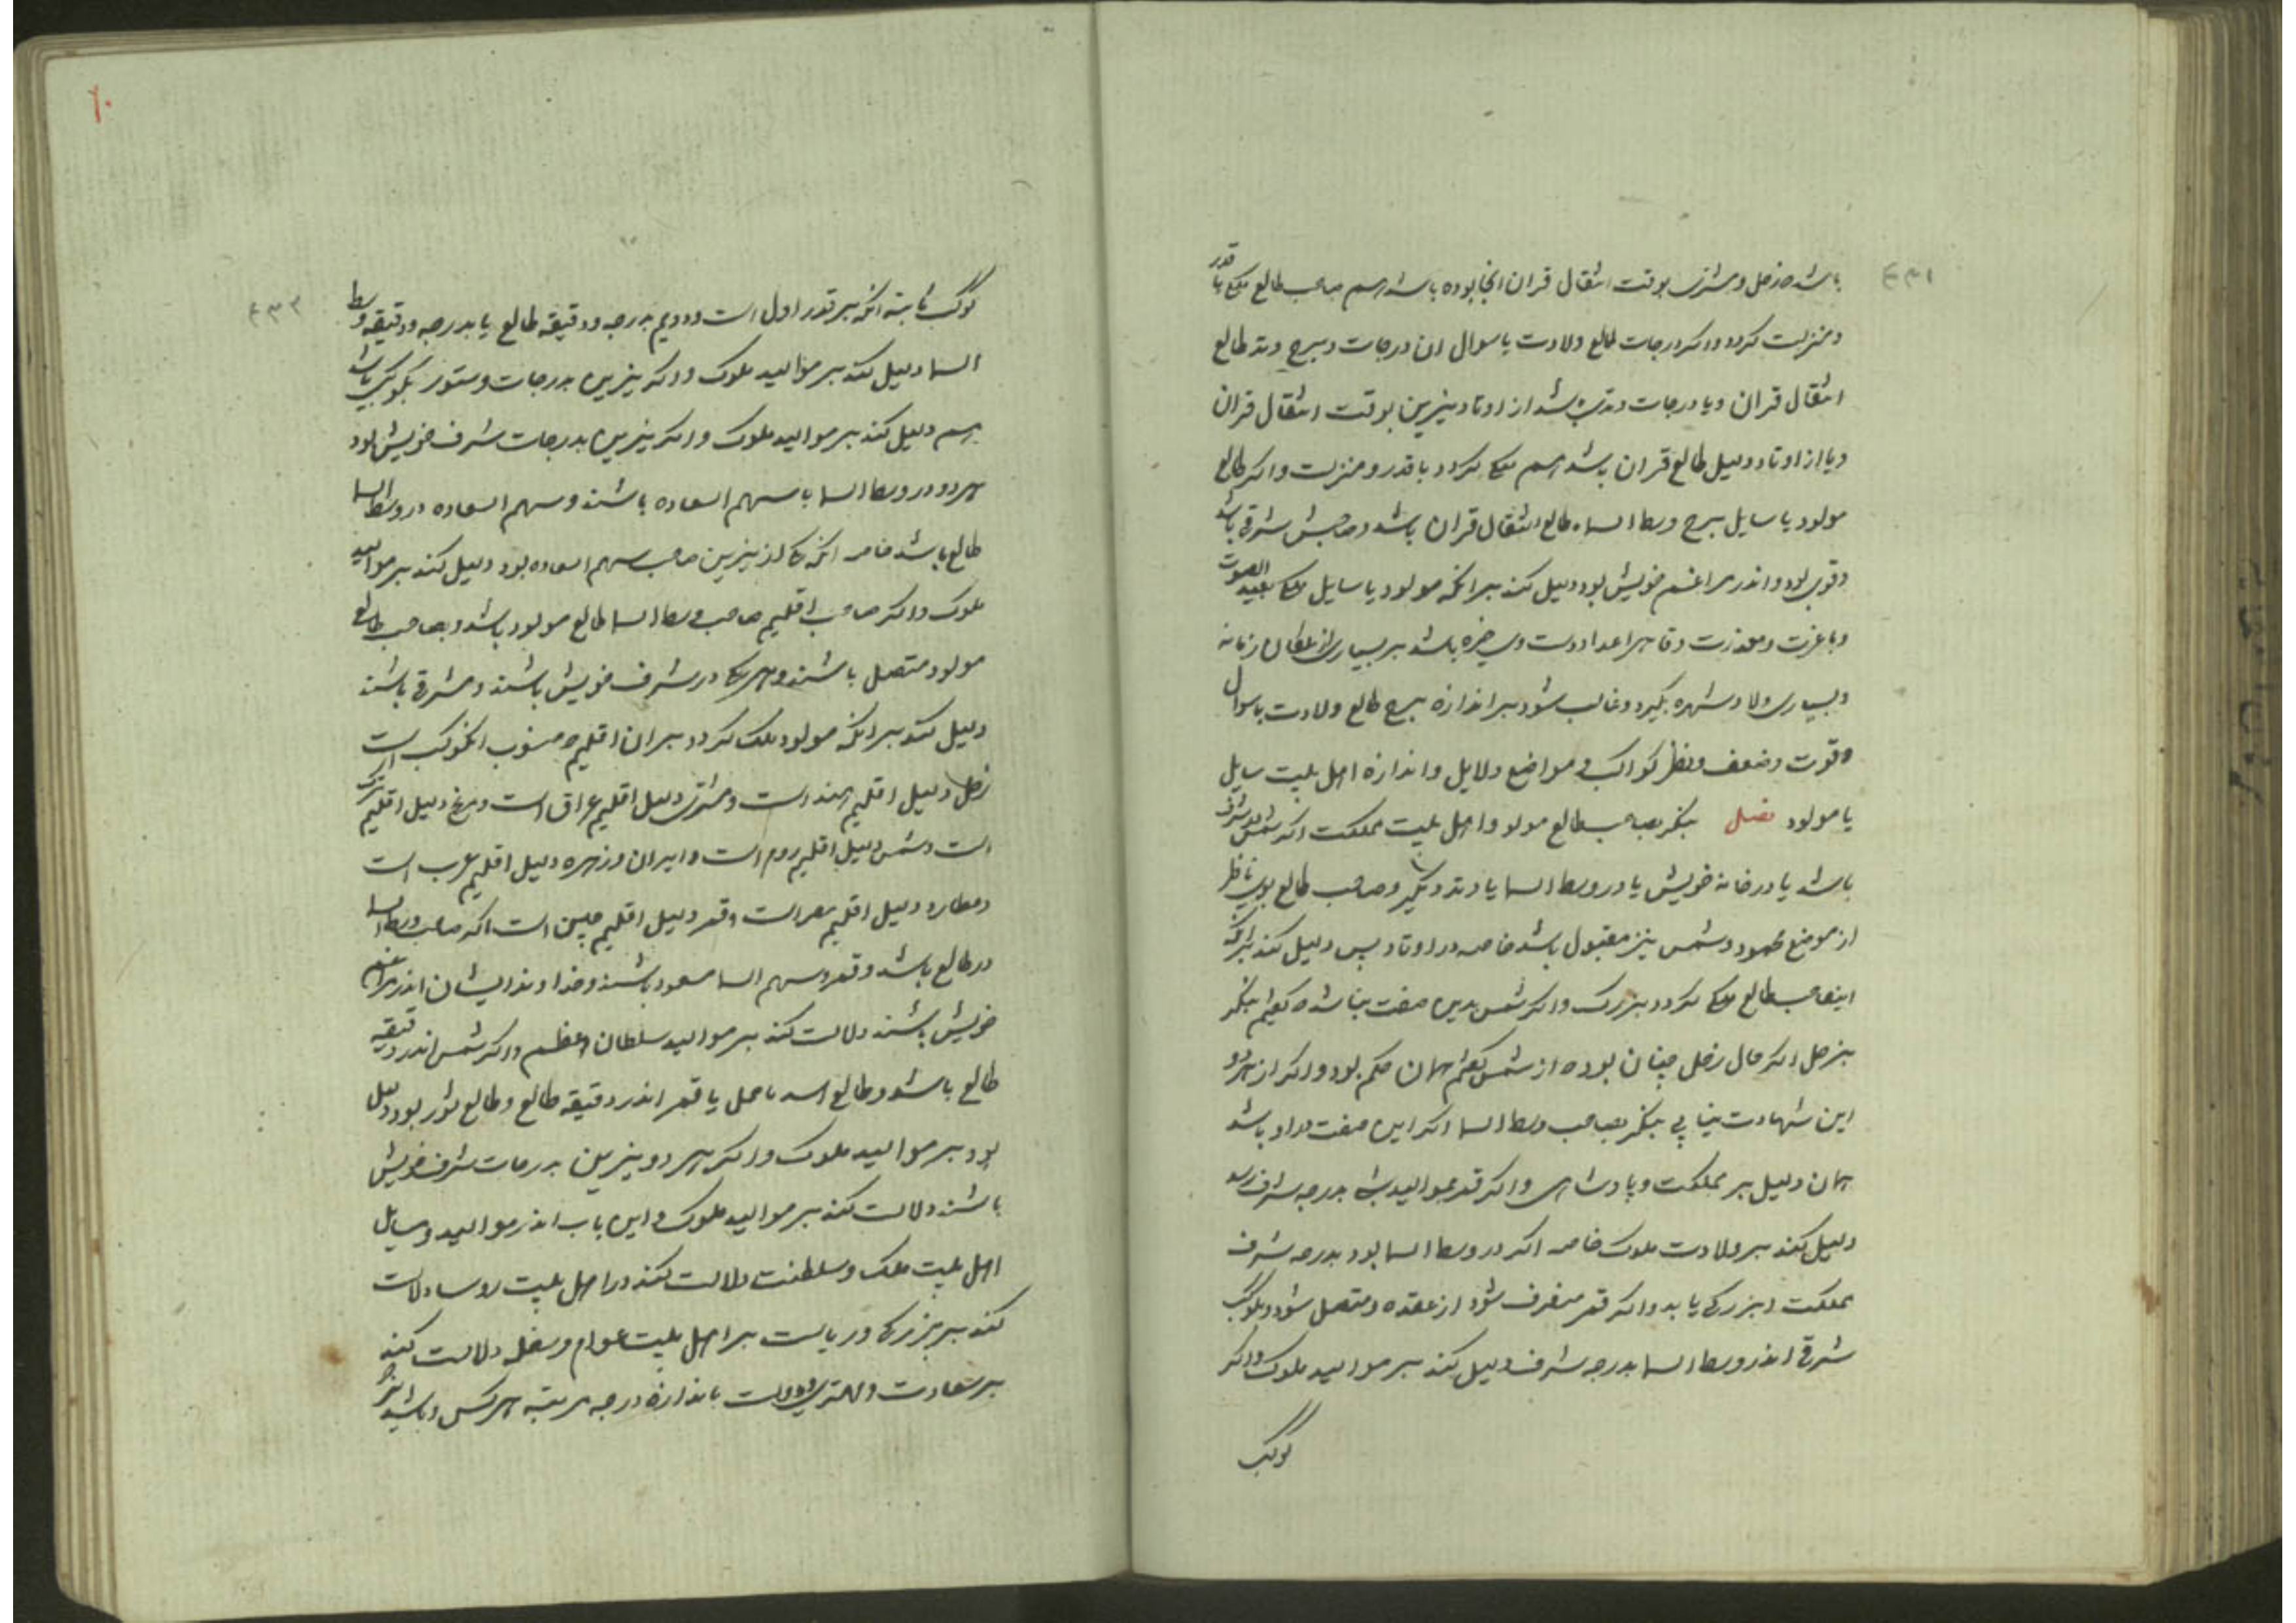 باشد و زحل و مشتری بوقت انتقال قران انجا بوده باشد هم صاحب طالع ملک با قدر
و منزلت کردد و اکر درجات طالع ولادت یا سوال ان درجات و برج وتد طالع
انتقال قران و یا درجات وتدی باشد از اوتاد نیرین بوقت انتقال قران
و یا از اوتاد دلیل طالع قران باشد هم ملک کردد با قدر و منزلت و اکر طالع
مولود یا سایل برج وسط السماء طالع انتقال قران باشد و صاحبش شرقی باشد
و قوی بود و اندر مراغم خویش بود دلیل کند بر انکه مولود یا سایل ملک بعید الصوت
و با عزت و مقدرت و قاهر اعدا دوست و چیره باشد بر بسیاری از ملکان زمانه
و بسیاری ولا و شهره بگیرد و غالب شود بر اندازه برج طالع ولادت یا سوال
و قوت و ضعف و نظر کواکب و مواضع دلایل و اندازه اهل بیت سایل
یا مولود فصل بنکر بصاحب طالع مولود و اهل بیت مملکت اکر شمس در شرف
باشد یا در خانه خویش یا در وسط السما یا وتد دیگر و صاحب طالع بوی ناظر
از موضع محمود و شمس نیز مقبول باشد خاصه در اوتاد پس دلیل کند بر انکه
این صاحب طالع ملک کردد بزرک و اکر شمس بدین صفت نباشد که گفتیم بنکر
بزحل اکر حال زحل چنان بود که از شمس گفتیم همان حکم بود و اکر از هر دو
این شهادت نیابی بنکر بصاحب وسط السما اکر این صفت دارد باشد
همان دلیل بر مملکت و پادشاهی و اکر قمر بموالید شب بدرجه شرف رسد
دلیل کند بر ولادت ملوک خاصه اکر در وسط السما بود بدرجه شرف
مملکت و بزرکی یابد و اکر قمر منصرف شود از عقده و متصل شود بکوکب
شرقی اندر وسط السما بدرجه شرف دلیل کند بر موالید ملوک و اکر
کوکب
کوکب ثابته انکه بر قدر اول است و دویم بدرجه و دقیقه طالع یا بدرجه و دقیقه وسط
السما دلیل کند بر موالید ملوک و اکر نیرین بدرجات و ستور بکوکبی باشد
هم دلیل کند بر موالید ملوک و اکر نیرین بدرجات شرف خویش بود
هر دو در وسط السما با سهم السعاده باشند و سهم السعاده در وسط السما
طالع باشد خاصه انکه یکی از نیرین صاحب سهم السعاده بود دلیل کند بر موالید
ملوک و اکر صاحب اقلیم صاحب وسط السما طالع مولود باشد و بصاحب طالع
مولود متصل باشند و هر یکی در شرف خویش باشند و مشرقی باشند
دلیل کند بر انکه مولود ملک کردد بر ان اقلیم که منسوب انکوکب است
زحل دلیل اقلیم هند است و مشتری دلیل اقلیم عراق است و مریخ دلیل اقلیم ترک
است و شمس دلیل اقلیم روم است و ایران و زهره دلیل اقلیم عرب است
و عطارد دلیل اقلیم مصر است و قمر دلیل اقلیم چین است اکر صاحب وسط السما
در طالع باشد و قمر و سهم السما مسعود باشند و خداوند ایشان اندر مراغم
خویش باشند دلالت کند بر موالید سلطان اعظم و اکر شمس اندر دقیقه
طالع باشد و طالع اسد یا حمل یا قمر اندر دقیقه طالع و طالع ثور بود دلیل
بود بر موالید ملوک و اکر هر دو نیرین بدرجات شرف خویش
باشند دلالت کند بر موالید ملوک و این باب اندر موالید و سایل
اهل بیت ملک و سلطنت دلالت کند و در اهل بیت روسا دلالت
کند بر بزرکی و ریاست بر اهل بیت عوام و سفله دلالت کند
بر سعادت و مهتری و دولت باندازه درجه مرتبه هر کس و باشد